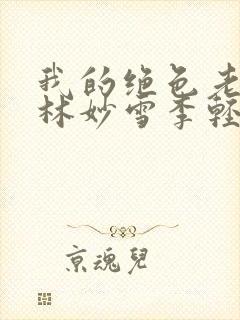 我的绝色老
林妙雪季轻
京魂儿